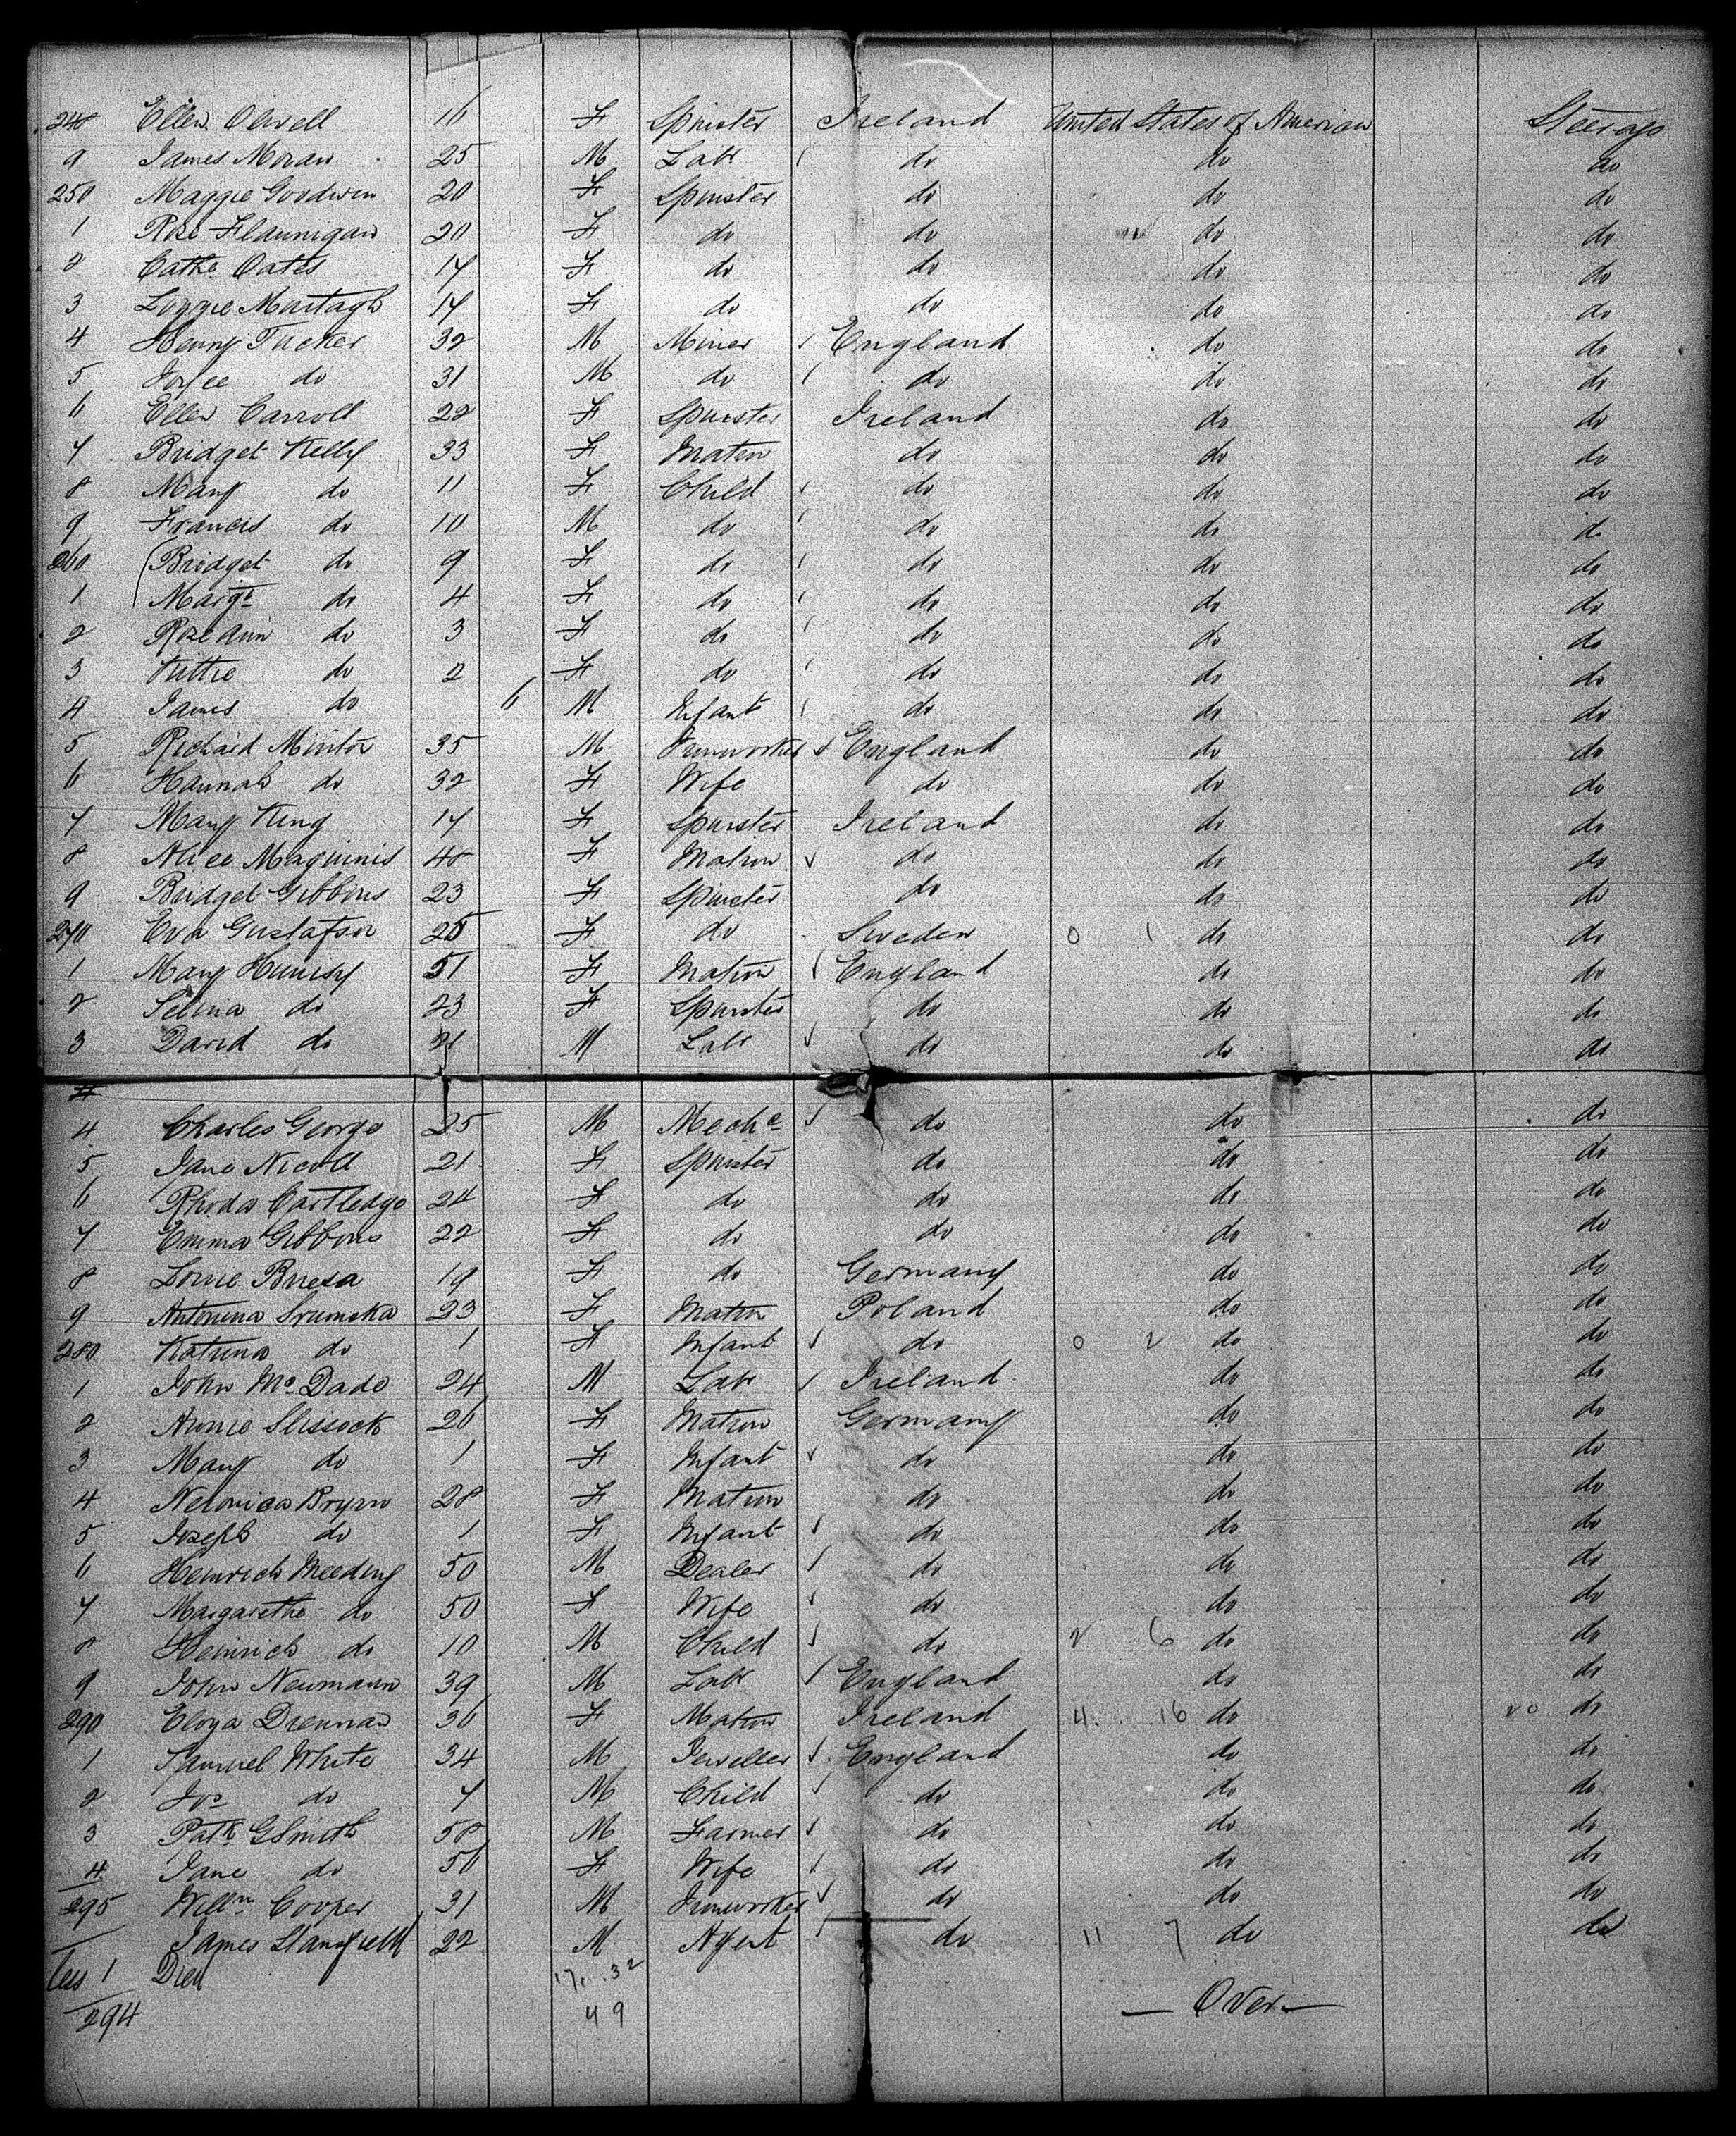 248 Ellen Olwell 16 F Spinster Ireland United States of American Steerage
9 James Moran 25 M Labr do do do
250 Maggie Goodwin 20 F Spinster do do do
1 Rose Flannigan 20 F do do do do
2 Cathe Oates 17 F do do do do
3 Lizzie Murtagh 17 F do do do do
4 Henry Tucker 32 M Miner England do do
5 do 31 M do do do do
6 Ellen Carroll 22 F Spinster Ireland do do
7 Bridget Kelly 33 F Matron do do do
8 Mary do 11 F Child do do do
9 Francis do 10 M do do do do
260 Bridget do 9 F do do do do
1 Margt do 4 F do do do do
2 Rose Ann do 3 F do do do do
3 Kittie do 2 F do do do do
4 James do 6 M Infant do do do
5 Richard Minton 35 M Ironworker England do do
6 Hannah do 32 F Wife do do do
7 Mary King 17 F Spinster Ireland do do
8 Alice Maguinis 48 F Matron do do do
9 Bridget Gibbons 23 F Spinster do do do
270 Eva Gustafson 25 F do Sweden 0 1 do do
1 Mary 51 F Matron England do do
2 Selina do 23 F Spinster do do do
3 David do 21 M Labr do do do
4 Charles George 25 M Meche do do do
5 Jane Nicoll 21 F Spinster do do do
6 Rhoda Cartledge 24 F do do do do
7 Emma Gibbons 22 F do do do do
8 19 F do Germany do do
9 Antonina 23 F Matron Poland do do
280 Katrina do 1 F Infant do 0 2 do do
1 John McDade 24 M Labr Ireland do do
2 Annie Slissock 26 F Matron Germany do do
3 Mary do 1 F Infant do do do
4 28 F Matron do do do
5 Joseph do 1 F Infant do do do
6 Heinrich Meeding 50 M Dealer do do do
7 Margarethe do 50 F Wife do do do
8 Heinrich do 10 M Child do 2 6 do do
9 John Neumann 39 M Labr England do do
290 Eliza Drennan 36 F Matron Ireland 4 16 do 20 do
1 Samuel White 34 M Jeweller England do do
2 Jos do 7 M Child do do do
3 Patk G Smith 58 M Farmer do do do
4 Jane do 56 F Wife do do do
295 Willm Cooper 31 M Ironworker do do do
James Stansfield 22 M Agent do 11 7 do do
Less 1 Died 17 32
294 49 — Over —